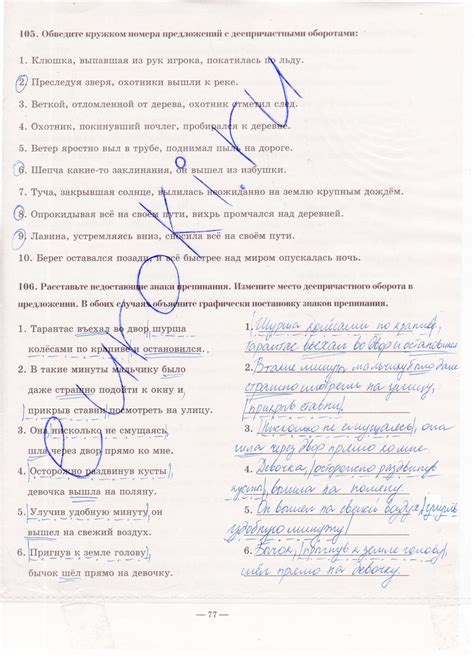 105. Обведите кружком номера предложений с деепричастными оборотами:
1. Клюшка, выпавшая из рук игрока, покатилась по льду.
2. Преследуя зверя, охотники вышли к реке.
3. Веткой, отломленной от дерева, охотник отметил след.
4. Охотник, покинувший ночлег, пробирался к деревне.
5. Ветер яростно выл в трубе, поднимал пыль на дороге.
6. Шепча какие-то заклинания, он вышел из избушки.
7. Туча, закрывшая солнце, вылилась неожиданно на землю крупным дождём.
8. Опрокидывая всё на своём пути, вихрь промчался над деревней.
9. Лавина, устремляясь вниз, сносила всё на своём пути.
10. Берег оставался позади, и всё быстрее над миром опускалась ночь.
euroki.ru
106. Расставьте недостающие знаки препинания. Измените место деепричастного оборота в
предложении. В обоих случаях объясните графически постановку знаков препинания.
1. Тарантас въехал во двор, шурша
колёсами по крапиве и остановился.
2. В такие минуты мальчику было
даже страшно подойти к окну и,
прикрыв ставни, посмотреть на улицу.
3. Она, нисколько не смущаясь,
шла через двор прямо ко мне.
4. Осторожно раздвинув кусты,
девочка вышла на поляну.
5. Улучив удобную минуту, он
вышел на свежий воздух.
6. Пригнув к земле голову,
бычок шёл прямо на девочку.
1. Шурша колёсами по крапиве,
тарантас въехал во двор и остановился
2. В такие минуты мальчику было даже
страшно смотреть на улицу,
прикрыв ставни.
3. Нисколько не смущаясь, она
шла через двор прямо ко мне.
4. Девочка, осторожно раздвинув
кусты, вышла на поляну.
5. Он вышел на свежий воздух, улучив
удобную минуту.
6. Бычок, пригнув к земле голову,
шёл прямо на девочку.
— 77 —